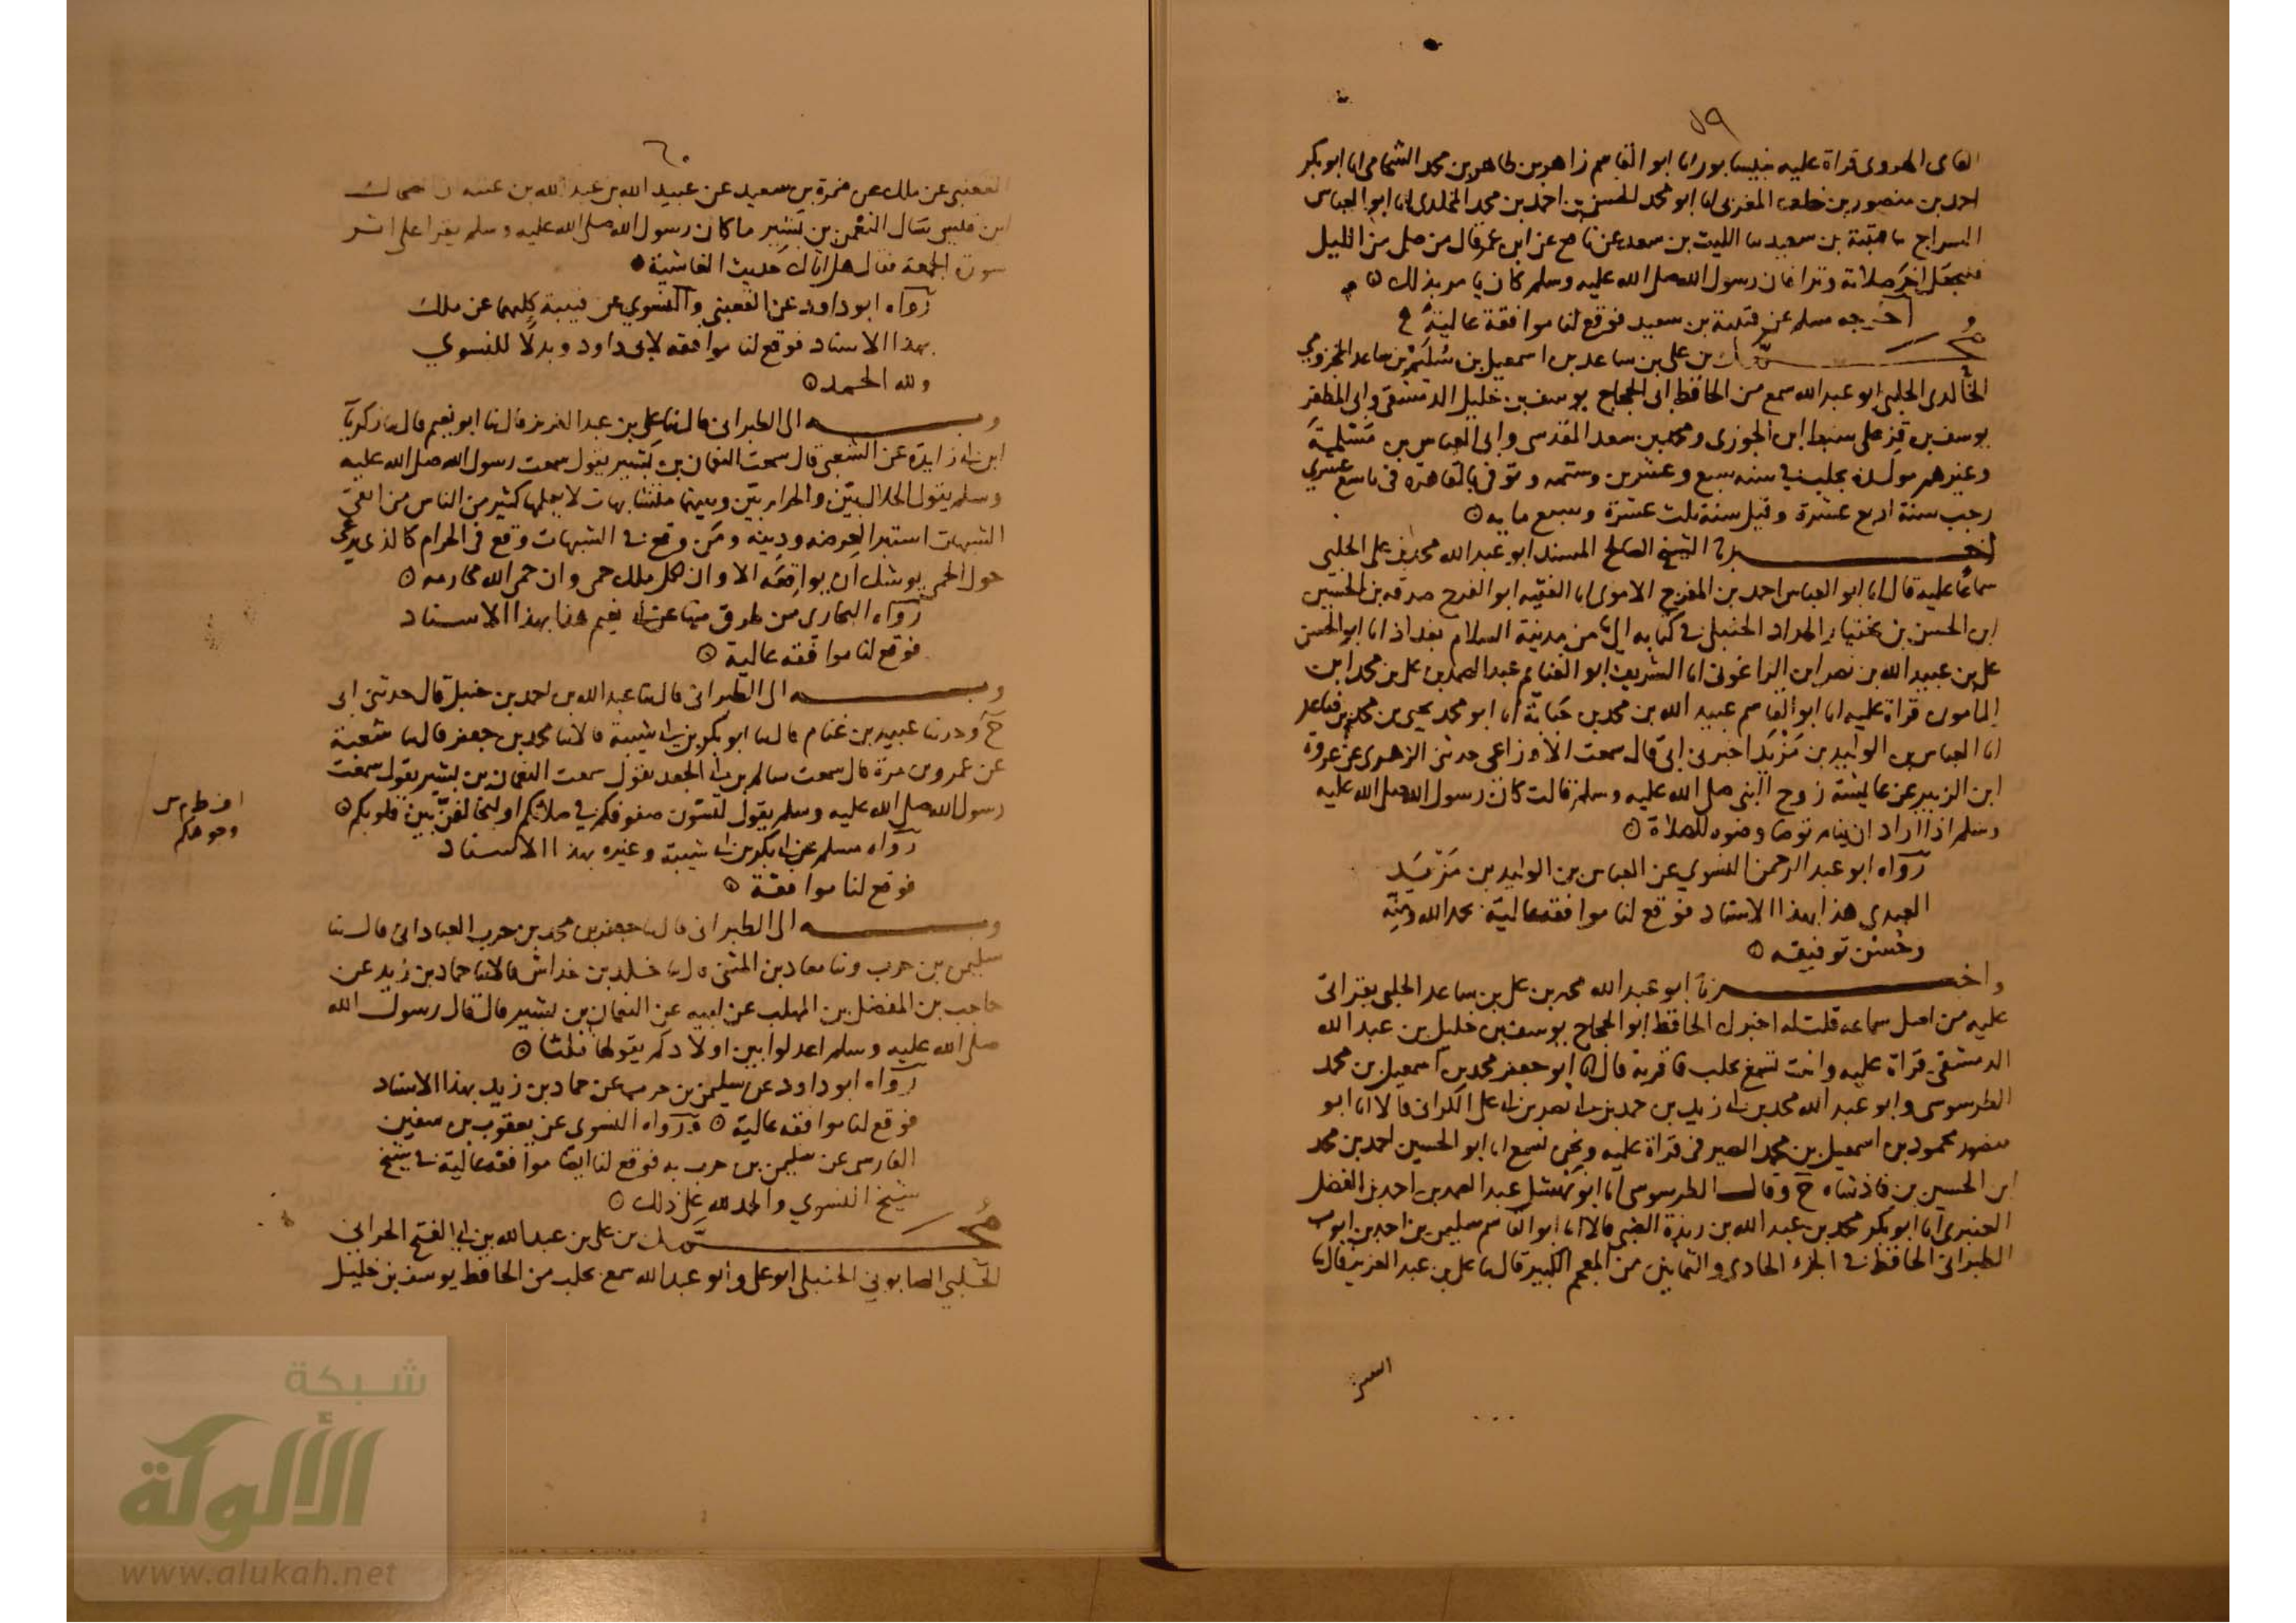 ٥٩
الهروى قراة عليه بنيسابور انا ابو القاسم زاهر بن طاهر بن محمد الشحامى انا ابو بكر
احمد بن منصور بن خلف المغربى انا ابو محمد الحسن بن احمد بن محمد المخلدى انا ابو العباس
السراج ثنا قتيبة بن سعيد ثنا الليث بن سعد عن نافع عن ابن عمر قال من صلى من الليل
فليجعل اخر صلاته وترا فان رسول الله صلى الله عليه وسلم كان يامر بذلك
اخرجه مسلم عن قتيبة بن سعيد فوقع لنا موافقة عالية
محمد بن على بن ساعد بن اسمعيل بن سليم بن ساعد المخزومي
الخالدى الحلبي ابو عبد الله سمع من الحافظ ابى الحجاج يوسف بن خليل الدمشقى وابى المظفر
يوسف بن قزعلى سبط ابن الجوزى ومحمد بن سعد المقدسى وابى العباس بن مسلمة
وغيرهم مولده بحلب في سنه سبع وعشرين وستمه وتوفى بالقاهرة فى تاسع عشري
رجب سنة اربع عشرة وقيل سنة ثلث عشرة وسبع مايه
اخبرنا الشيخ الصالح المسند ابو عبد الله محمد بن على الحلبي
سماعا عليه قال انا ابو العباس احمد بن المفرج الاموى انا الفقيه ابو الفرح صدقه بن الحسين
ابن الحسن بن بختيار الحداد الحنبلى في كتابه الي من مدينة السلام بغداذ انا ابو الحسن
على بن عبيد الله بن نصر ابن الزاغونى انا الشريف ابو الغنايم عبد الصمد بن على بن محمد ابن
المامون قراة عليه انا ابو القاسم عبيد الله بن محمد بن حبابة انا ابو محمد يحيى بن محمد بن صاعد
انا العباس بن الوليد بن مزيد اخبرنى ابى قال سمعت الاوزاعى حدثنى الزهرى عن عروة
ابن الزبير عن عايشة زوج النبى صلى الله عليه وسلم قالت كان رسول الله صلى الله عليه
وسلم اذا اراد ان ينام توضا وضوه للصلاة
رواه ابو عبد الرحمن النسوي عن العباس بن الوليد بن مزيد
هذا بهذا الاسناد فوقع لنا موافقة عالية بحمد الله ومنه
وحسن توفيقه
واخبرنا ابو عبد الله محمد بن على بن ساعد الحلبى بقراتى
عليه من اصل سماعه قلت له اخبرك الحافظ ابو الحجاج يوسف بن خليل بن عبد الله
الدمشقى قراة عليه وانت تسمع بحلب فاقربه قال انا ابو جعفر محمد بن اسمعيل بن محمد
الطرسوسى وابو عبد الله محمد بن ابى زيد بن حمد بن ابى نصر بن ابى على الكرانى قالا انا ابو
منصور محمود بن اسمعيل بن محمد الصيرفى قراة عليه ونحن نسمع انا ابو الحسين احمد بن محمد
ابن الحسين بن فاذشاه ح وقال الطرسوسى انا ابو نهشل عبد الصمد بن احمد بن الفضل
العنبرى انا ابو بكر محمد بن عبد الله بن ريذة الضبى قالا انا ابو القاسم سليمن بن احمد بن ايوب
الطبرانى الحافظ في الجزء الحادى والثمانين من المعجم الكبير قال ثنا على بن عبد العزيز قال ثنا
٦٠
القعنبى عن ملك عن ضمرة بن سعيد عن عبيد الله بن عبد الله بن عتبه ان الضحاك
ابن قيس سال النعمن بن بشير ما كان رسول الله صلى الله عليه وسلم يقرا على اثر
سورة الجمعة فقال هل اتاك حديث الغاشية
رواه ابو داود عن القعنبى والنسوي عن قتيبة كلهما عن ملك
بهذا الاسناد فوقع لنا موافقه لابى داود وبدلا للنسوي
ولله الحمد
وبه الى الطبرانى قال ثنا على بن عبد العزيز قال ثنا ابو نعيم قال ثنا زكريا
ابن ابى زايدة عن الشعبى قال سمعت النعمان بن بشير يقول سمعت رسول الله صلى الله عليه
وسلم يقول الحلال بين والحرام بين وبينهما متشابهات لا يعلمها كثير من الناس من اتقى
الشبهات استبرا لعرضه ودينه ومن وقع في الشبهات وقع فى الحرام كالذى يرعى
حول الحمى يوشك ان يواقعه الا وان لكل ملك حمى وان حمى الله محارمه
رواه البخارى من طرق منها عن ابى نعيم هذا بهذا الاسناد
فوقع لنا موافقه عالية
وبه الى الطبرانى قال ثنا عبد الله بن احمد بن حنبل قال حدثنى ابى
ح وحدثنا عبيد بن غنام قال ثنا ابو بكر بن ابى شيبة قالا ثنا محمد بن جعفر قال ثنا شعبة
عن عمرو بن مرة قال سمعت سالم بن ابى الجعد يقول سمعت النعمان بن بشير يقول سمعت
رسول الله صلى الله عليه وسلم يقول لتسون صفوفكم في صلاتكم او ليخالفن الله بين قلوبكم
رواه مسلم عن ابى بكر بن ابى شيبة وغيره بهذا الاسناد
فوقع لنا موافقة
وبه الى الطبرانى قال ثنا جعفر بن محمد بن حرب العبادانى قال ثنا
سليمن بن حرب وثنا معاذ بن المثنى قال ثنا خالد بن خداش قالا ثنا حماد بن زيد عن
حاجب بن المفضل بن المهلب عن ابيه عن النعمان بن بشير قال قال رسول الله
صلى الله عليه وسلم اعدلوا بين اولادكم يقولها ثلثا
رواه ابو داود عن سليمن بن حرب عن حماد بن زيد بهذا الاسناد
فوقع لنا موافقه عالية ورواه النسوى عن يعقوب بن سفين
الفارسى عن سليمن بن حرب به فوقع لنا ايضا موافقه عالية في شيخ
شيخ النسوي والحمد لله على ذلك
محمد بن على بن عبد الله بن ابى الفتح الحرانى
الحلبي الصابوني الحنبلى ابو على وابو عبد الله سمع بحلب من الحافظ يوسف بن خليل
وجوهكم
شبكة
الألوكة
www.alukah.net